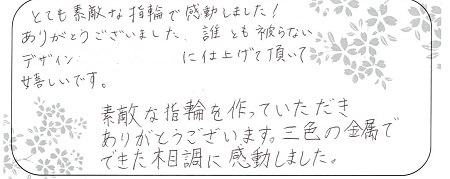 とても素敵な指輪で感動しました!
ありがとうございました。誰とも被らない
デザイン に仕上げて頂いて
嬉しいです。
素敵な指輪を作っていただき
ありがとうございます。三色の金属で
できた木目調に感動しました。